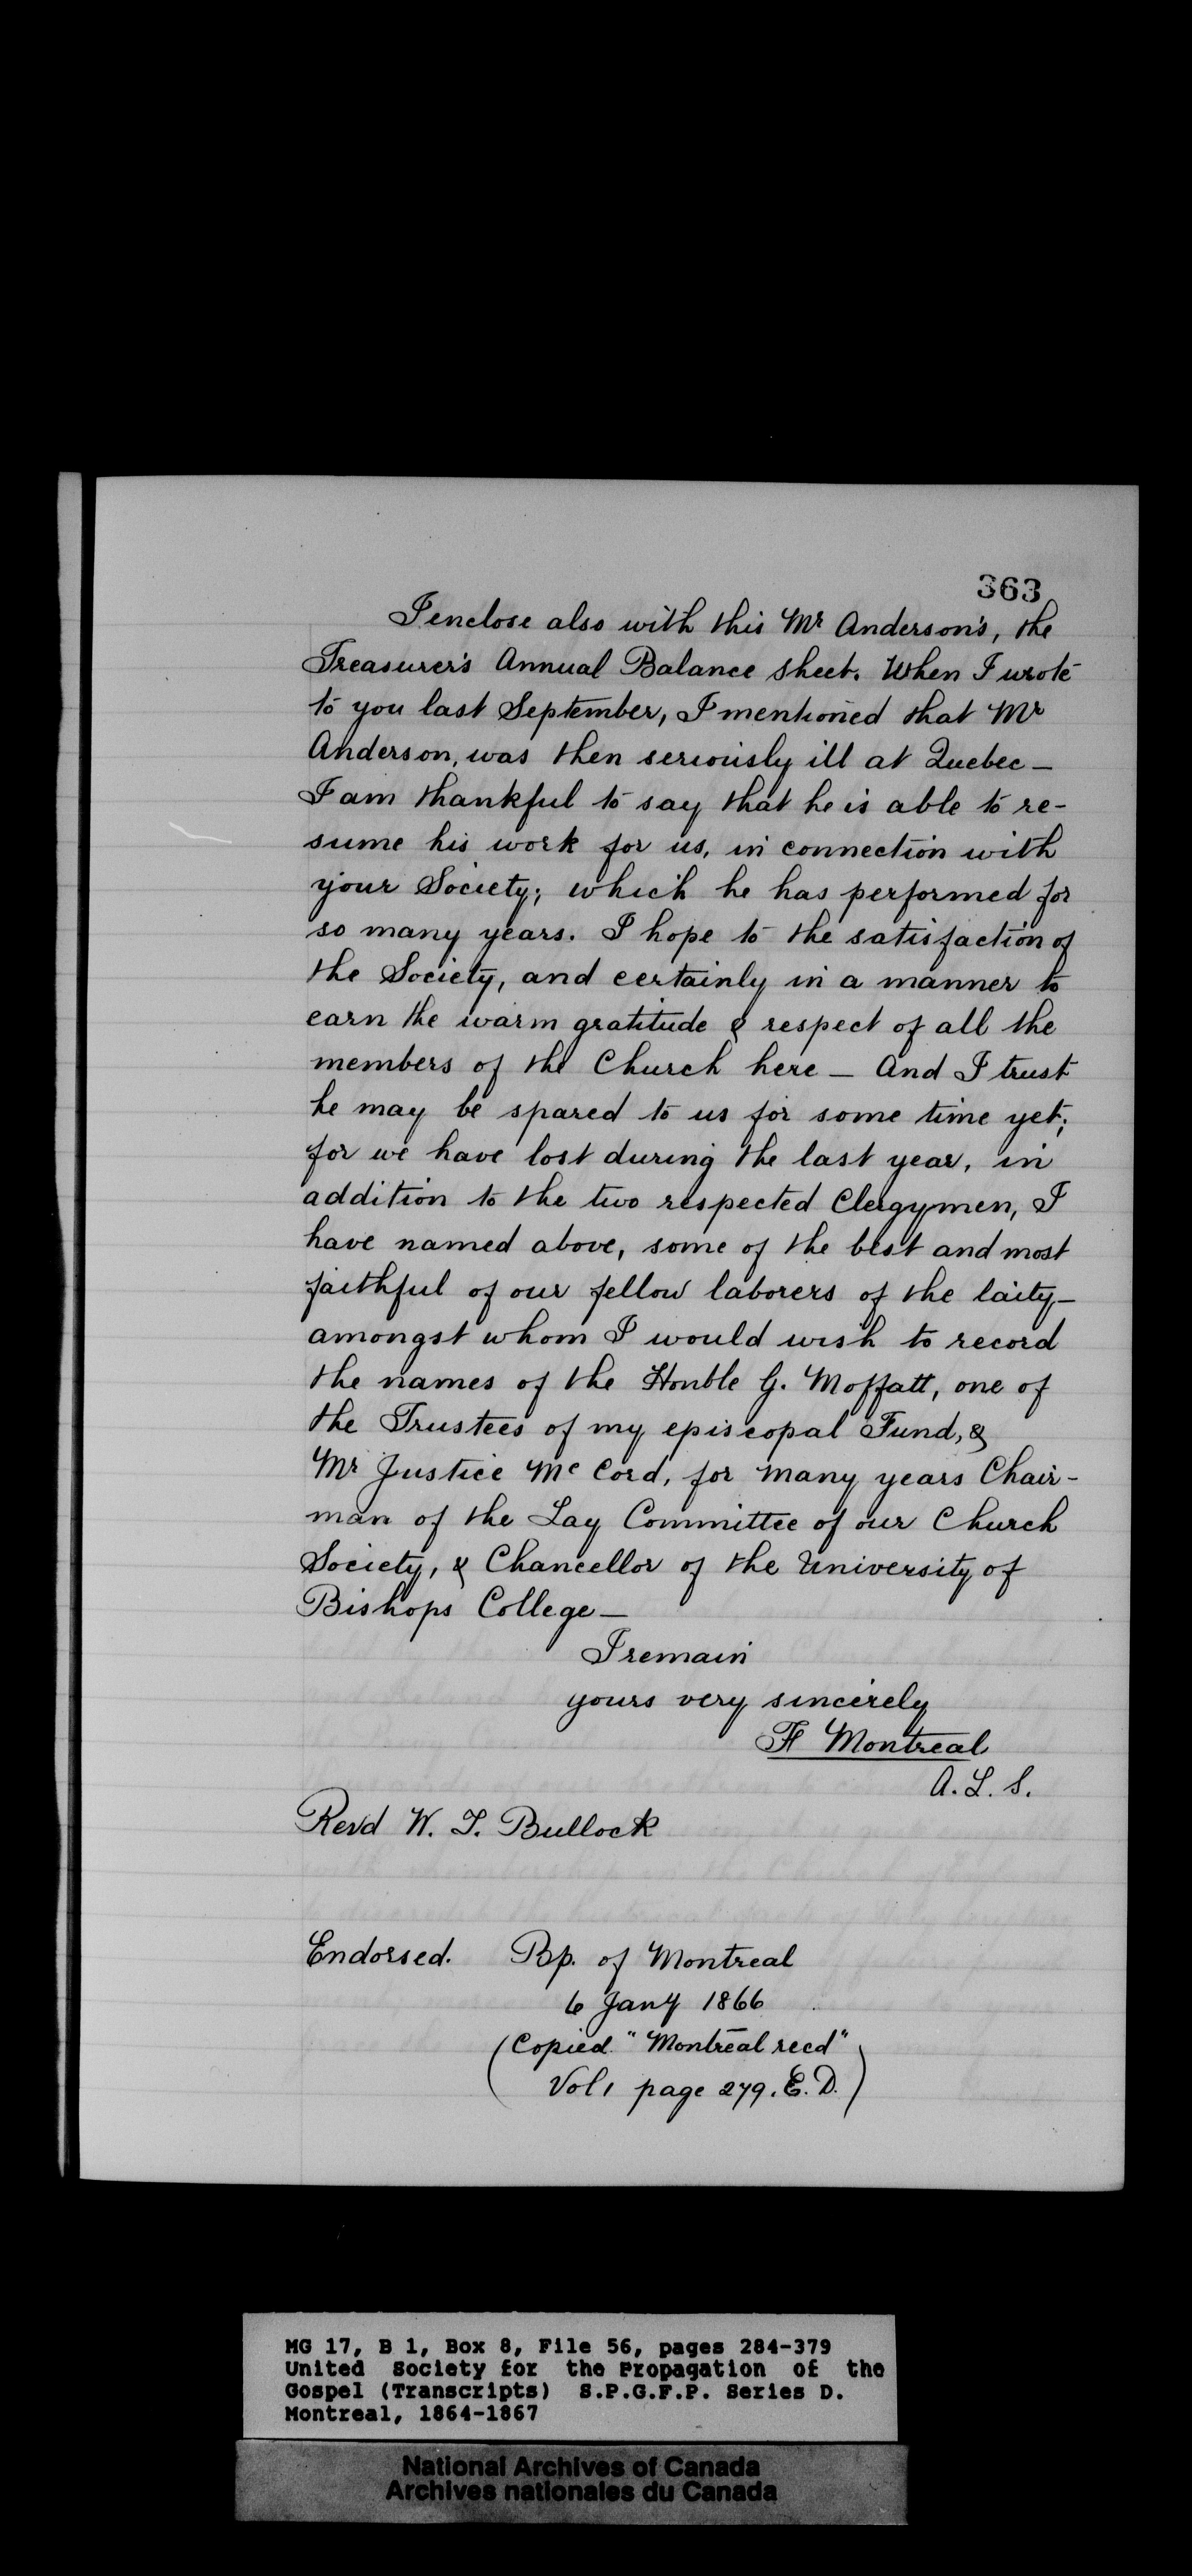 363
I enclose also with this Mr Anderson's, the
Treasurer's Annual Balance sheet. When I wrote
to you last September, I mentioned that Mr
Anderson, was then seriously ill at Quebec —
I am thankful to say that he is able to re-
sume his work for us, in connection with
your Society; which he has performed for
so many years. I hope to the satisfaction of
the Society, and certainly in a manner to
earn the warm gratitude & respect of all the
members of the Church here — And I trust
he may be spared to us for some time yet;
for we have lost during the last year, in
addition to the two respected Clergymen, I
have named above, some of the best and most
faithful of our fellow laborers of the laity —
amongst whom I would wish to record
the names of the Honble G. Moffatt, one of
the Trustees of my episcopal Fund, &
Mr Justice Mc Cord, for many years Chair-
man of the Lay Committee of our Church
Society, & Chancellor of the University of
Bishops College —
I remain
yours very sincerely
F Montreal
A. L. S.
Revd W. T. Bullock
Endorsed. Bp. of Montreal
6 Jany 1866
(Copied "Montreal recd"
Vol 1 page 279. E. D.)
MG 17, B 1, Box 8, File 56, pages 284-379
United Society for the Propagation of the
Gospel (Transcripts) S.P.G.F.P. Series D.
Montreal, 1864-1867
National Archives of Canada
Archives nationales du Canada